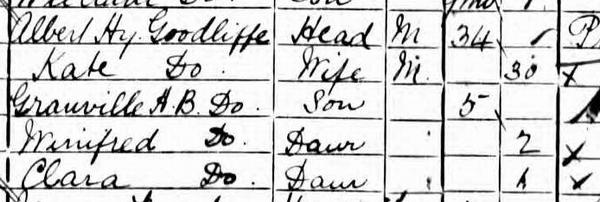 Albert Hy. Goodliffe Head M 34
Kate Do Wife M. 30 x
Granville A. B. Do. Son 5
Winifred Do. Daur 2 x
Clara Do. Daur 1 x